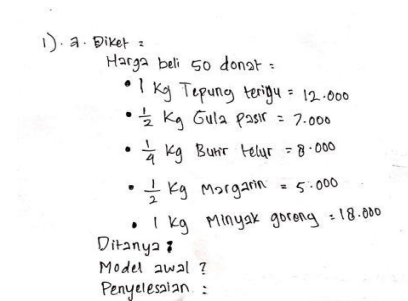 1). a. Diket :
Harga beli 50 donat :
• 1 Kg Tepung terigu = 12.000
• 1/2 Kg Gula pasir = 7.000
• 1/4 Kg Butir telur = 8.000
• 1/2 Kg Margarin = 5.000
• 1 Kg Minyak goreng = 18.000
Ditanya :
Model awal ?
Penyelesaian :